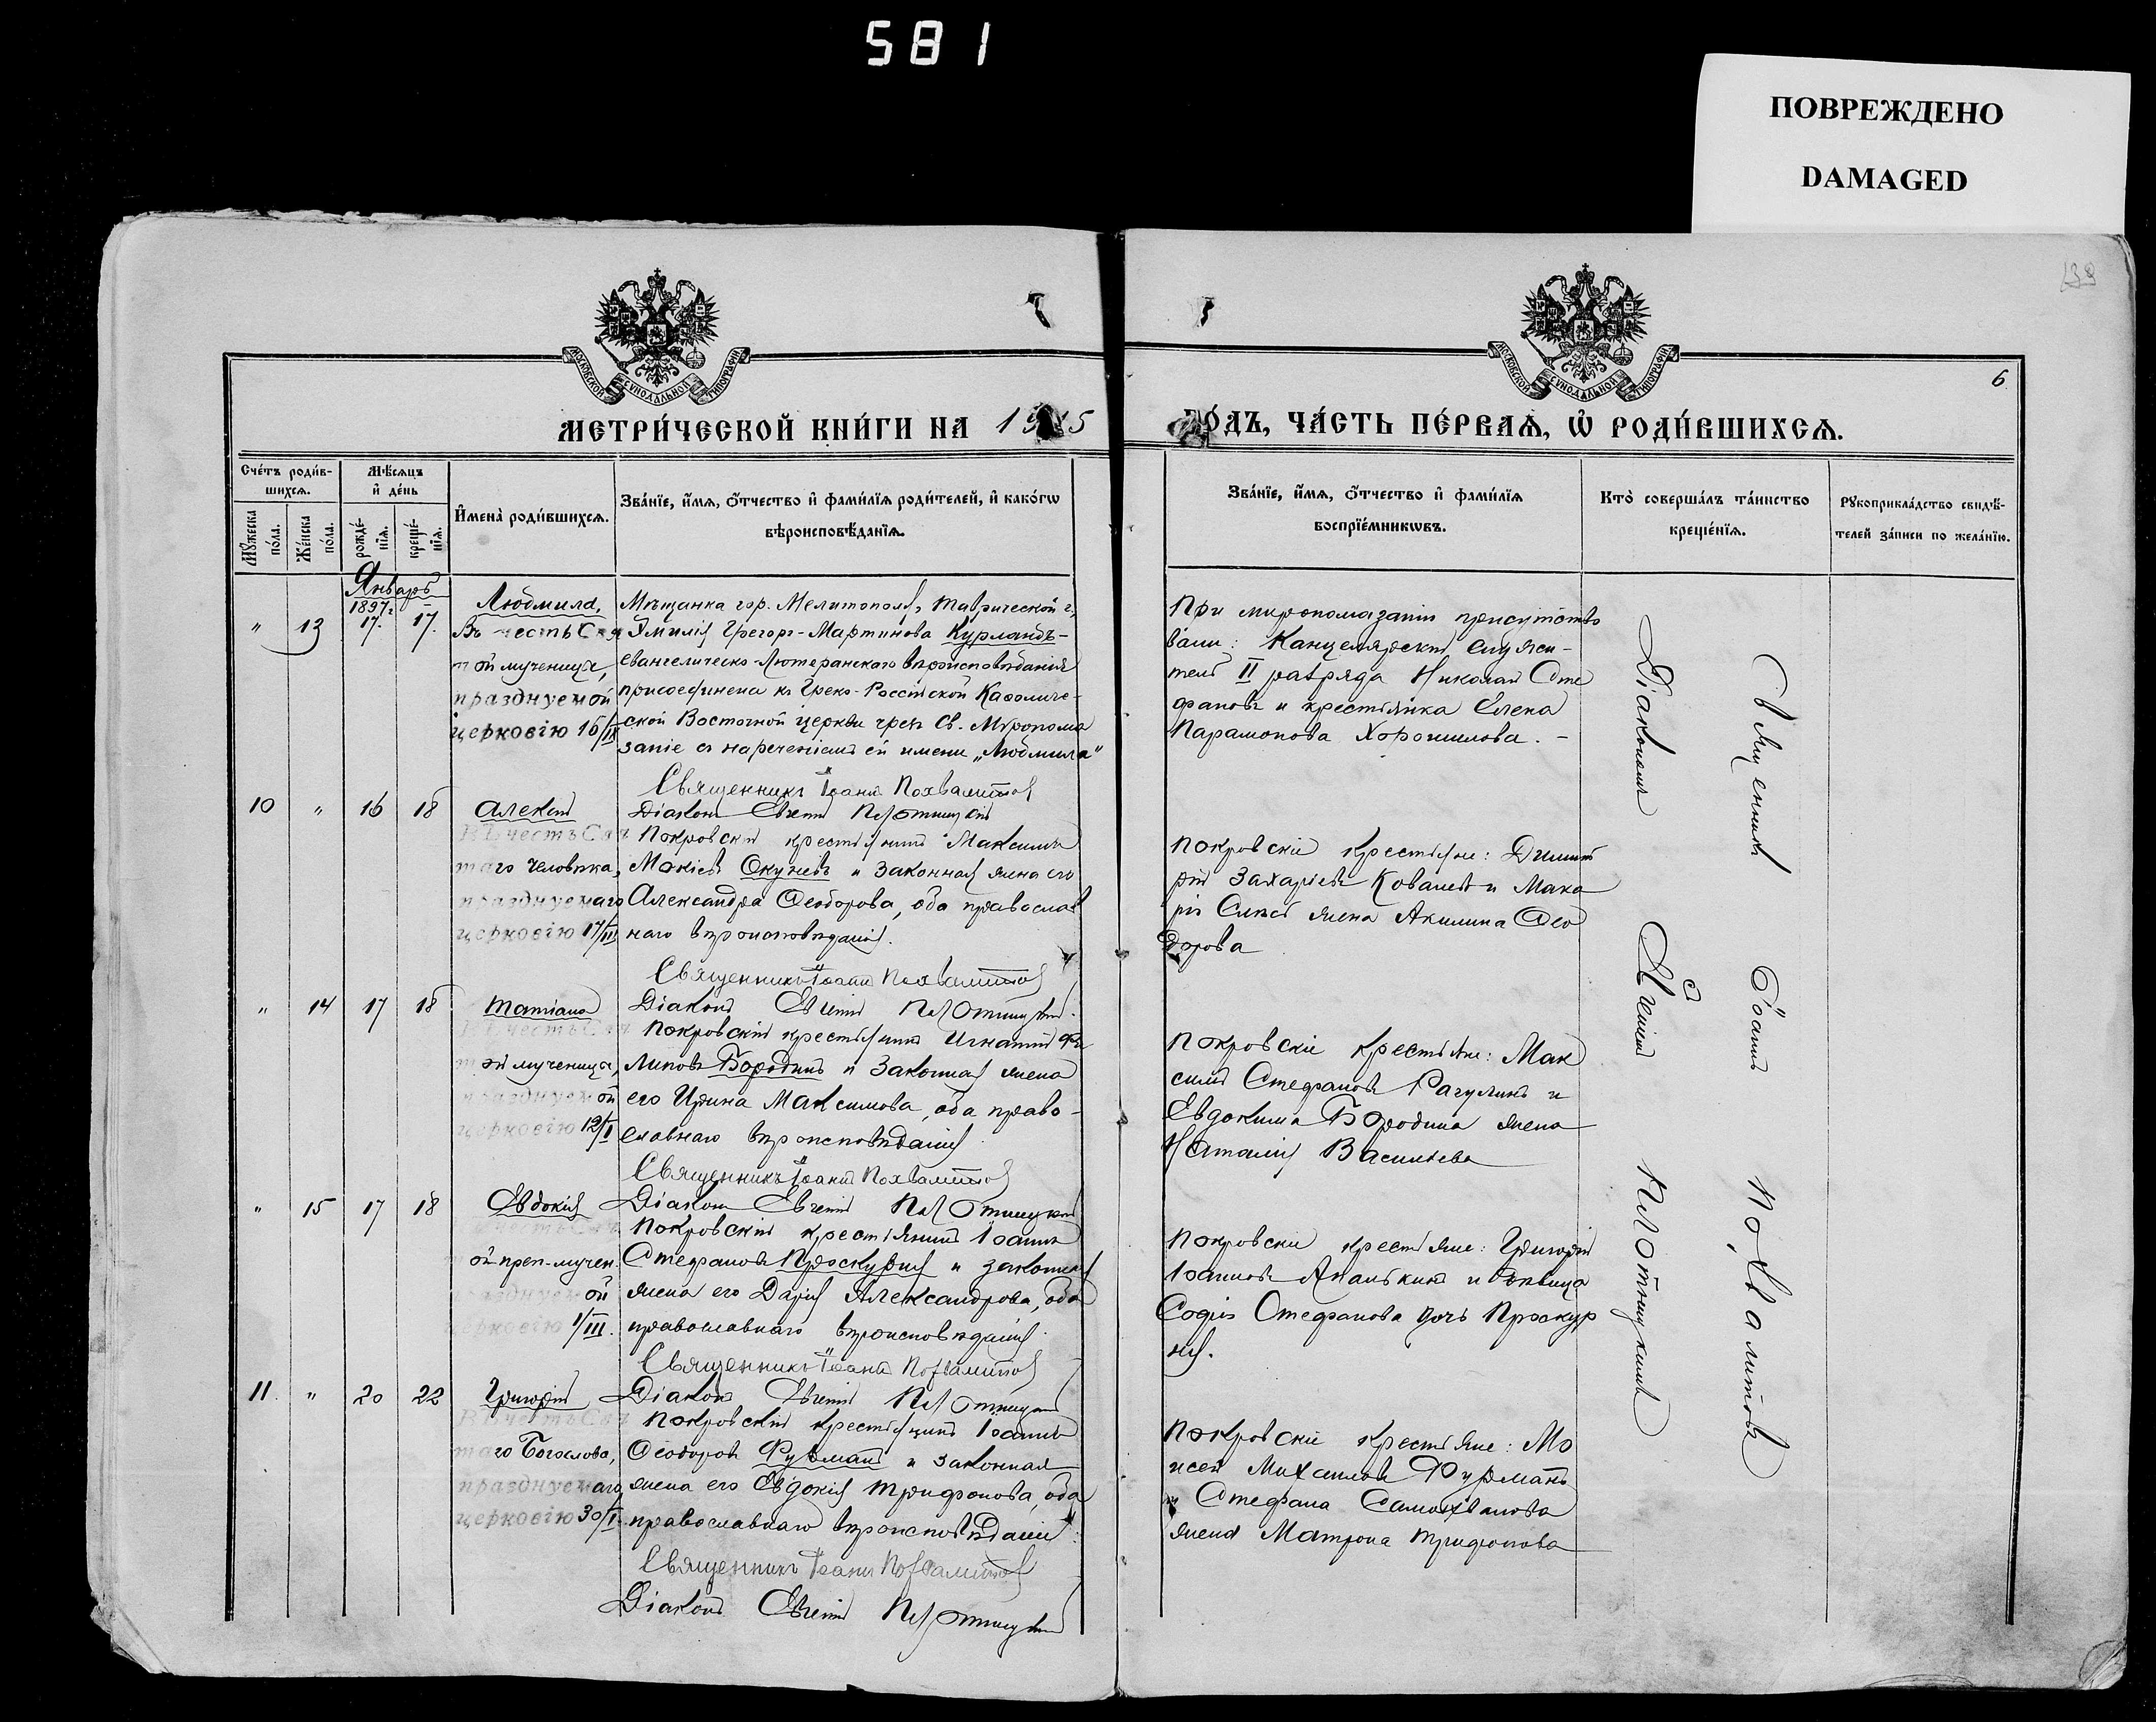 581
ПОВРЕЖДЕНО
DAMAGED
138
6
МОСКОВСКОЙ СѴНОДАЛЬНОЙ ТИПОГРАФІИ
МОСКОВСКОЙ СѴНОДАЛЬНОЙ ТИПОГРАФІИ
МЕТРИ́ЧЕСКОЙ КНИ́ГИ НА 1915
ГО́ДЪ, ЧА́СТЬ ПЕ́РВАѦ, Ѡ҆ РОДИ́ВШИХСѦ.
Сче́тъ роди́в-
шихсѧ.
Мѣ́сѧцъ
и҆ де́нь
Мꙋ́жеска по́ла.
Же́нска по́ла.
рожде́-
нїѧ.
креще́-
нїѧ.
И҆мена̀ роди́вшихсѧ.
Зва́нїе, и҆́мѧ, ѻ҆́тчество и҆ фами́лїѧ роди́телей, и҆ како́гѡ
вѣроисповѣ́данїѧ.
Зва́нїе, и҆́мѧ, ѻ҆́тчество и҆ фами́лїѧ
воспрїе́мникѡвъ.
Кто̀ соверша́лъ та́инство
креще́нїѧ.
Рꙋкоприкла́дство свидѣ́-
телей за́писи по жела́нїю.
Январь
" 13 1897 г. 17. 17.
Людмила,
Въ честь Свя
той мученицы,
празднуемой
церковію 16/IX
Мѣщанка гор. Мелитополя, Таврической г.,
Эмилія Грегорг-Мартинова Курландъ-
евангелическо-Лютеранскаго вѣроисповѣданія
присоединена къ Греко-Россійской Каѳоличе-
ской Восточной церкви чрезъ Св. Мѵропома
заніе съ нареченіемъ ей имени „Людмила"
Священникъ Іоаннъ Похвалитовъ
Діаконъ Евгеній Плотницкій
При миропомазаніи присутство
вали: Канцелярскій служи-
тель II разряда Николай Сте
фановъ и крестьянка Елена
Парамонова Хорошилова. -
10 " 16 18
Алексій
Въ честь Свя
таго человѣка,
празднуемаго
церковію 17/III
Покровскій крестьянинъ Максимъ
Мокіевъ Окуневъ и законная жена его
Александра Ѳеодорова, оба православ
наго вѣроисповѣданія.
Священникъ Іоаннъ Похвалитовъ
Діаконъ Евгеній Плотницкій.
Покровскіе крестьяне: Димит
рій Захаріевъ Ковалевъ и Мака
рія жена Акилина Ѳео
дорова
" 14 17 18
Татіана
Въ честь Свя
той мученицы,
празднуемой
церковію 12/I
Покровскій крестьянинъ Игнатій Фи
липовъ Бородинъ и законная жена
его Ирина Максимова, оба право-
славнаго вѣроисповѣданія.
Священникъ Іоаннъ Похвалитовъ
Діаконъ Евгеній Плотницкій
Покровскіе крестьяне: Мак
симъ Стефановъ Рагулинъ и
Евдокима Бородина жена
Наталія Васильева
" 15 17 18
Евдокія
честь Свя
ой преп-мучен.
ой
церковію 1/III.
Покровскій крестьянинъ Іоаннъ
Стефановъ Проскурня и законная
жена его Дарія Александрова, оба
православнаго вѣроисповѣданія.
Священникъ Іоаннъ Похвалитовъ
Діаконъ Евгеній Плотницкій
Покровскіе крестьяне: Григорій
Іоанновъ Ананькинъ и дѣвица
Софія Стефанова дочь Проскур
ня.
11. " 20 22
Григорій
Въ честь Свя
таго Богослова,
празднуемаго
церковію 30/I.
Покровскій крестьянинъ Іоаннъ
Ѳеодоровъ Фурманъ и законная
жена его Евдокія Трифонова, оба
православнаго вѣроисповѣданія.
Священникъ Іоаннъ Похвалитовъ
Діаконъ Евгеній Плотницкій
Покровскіе крестьяне: Мо
исей Михаиловъ Фурманъ
и Стефана Самохвалова
жена Матрона Трифонова
Священникъ Іоаннъ Похвалитовъ
Діакономъ Евгеніемъ Плотницкимъ